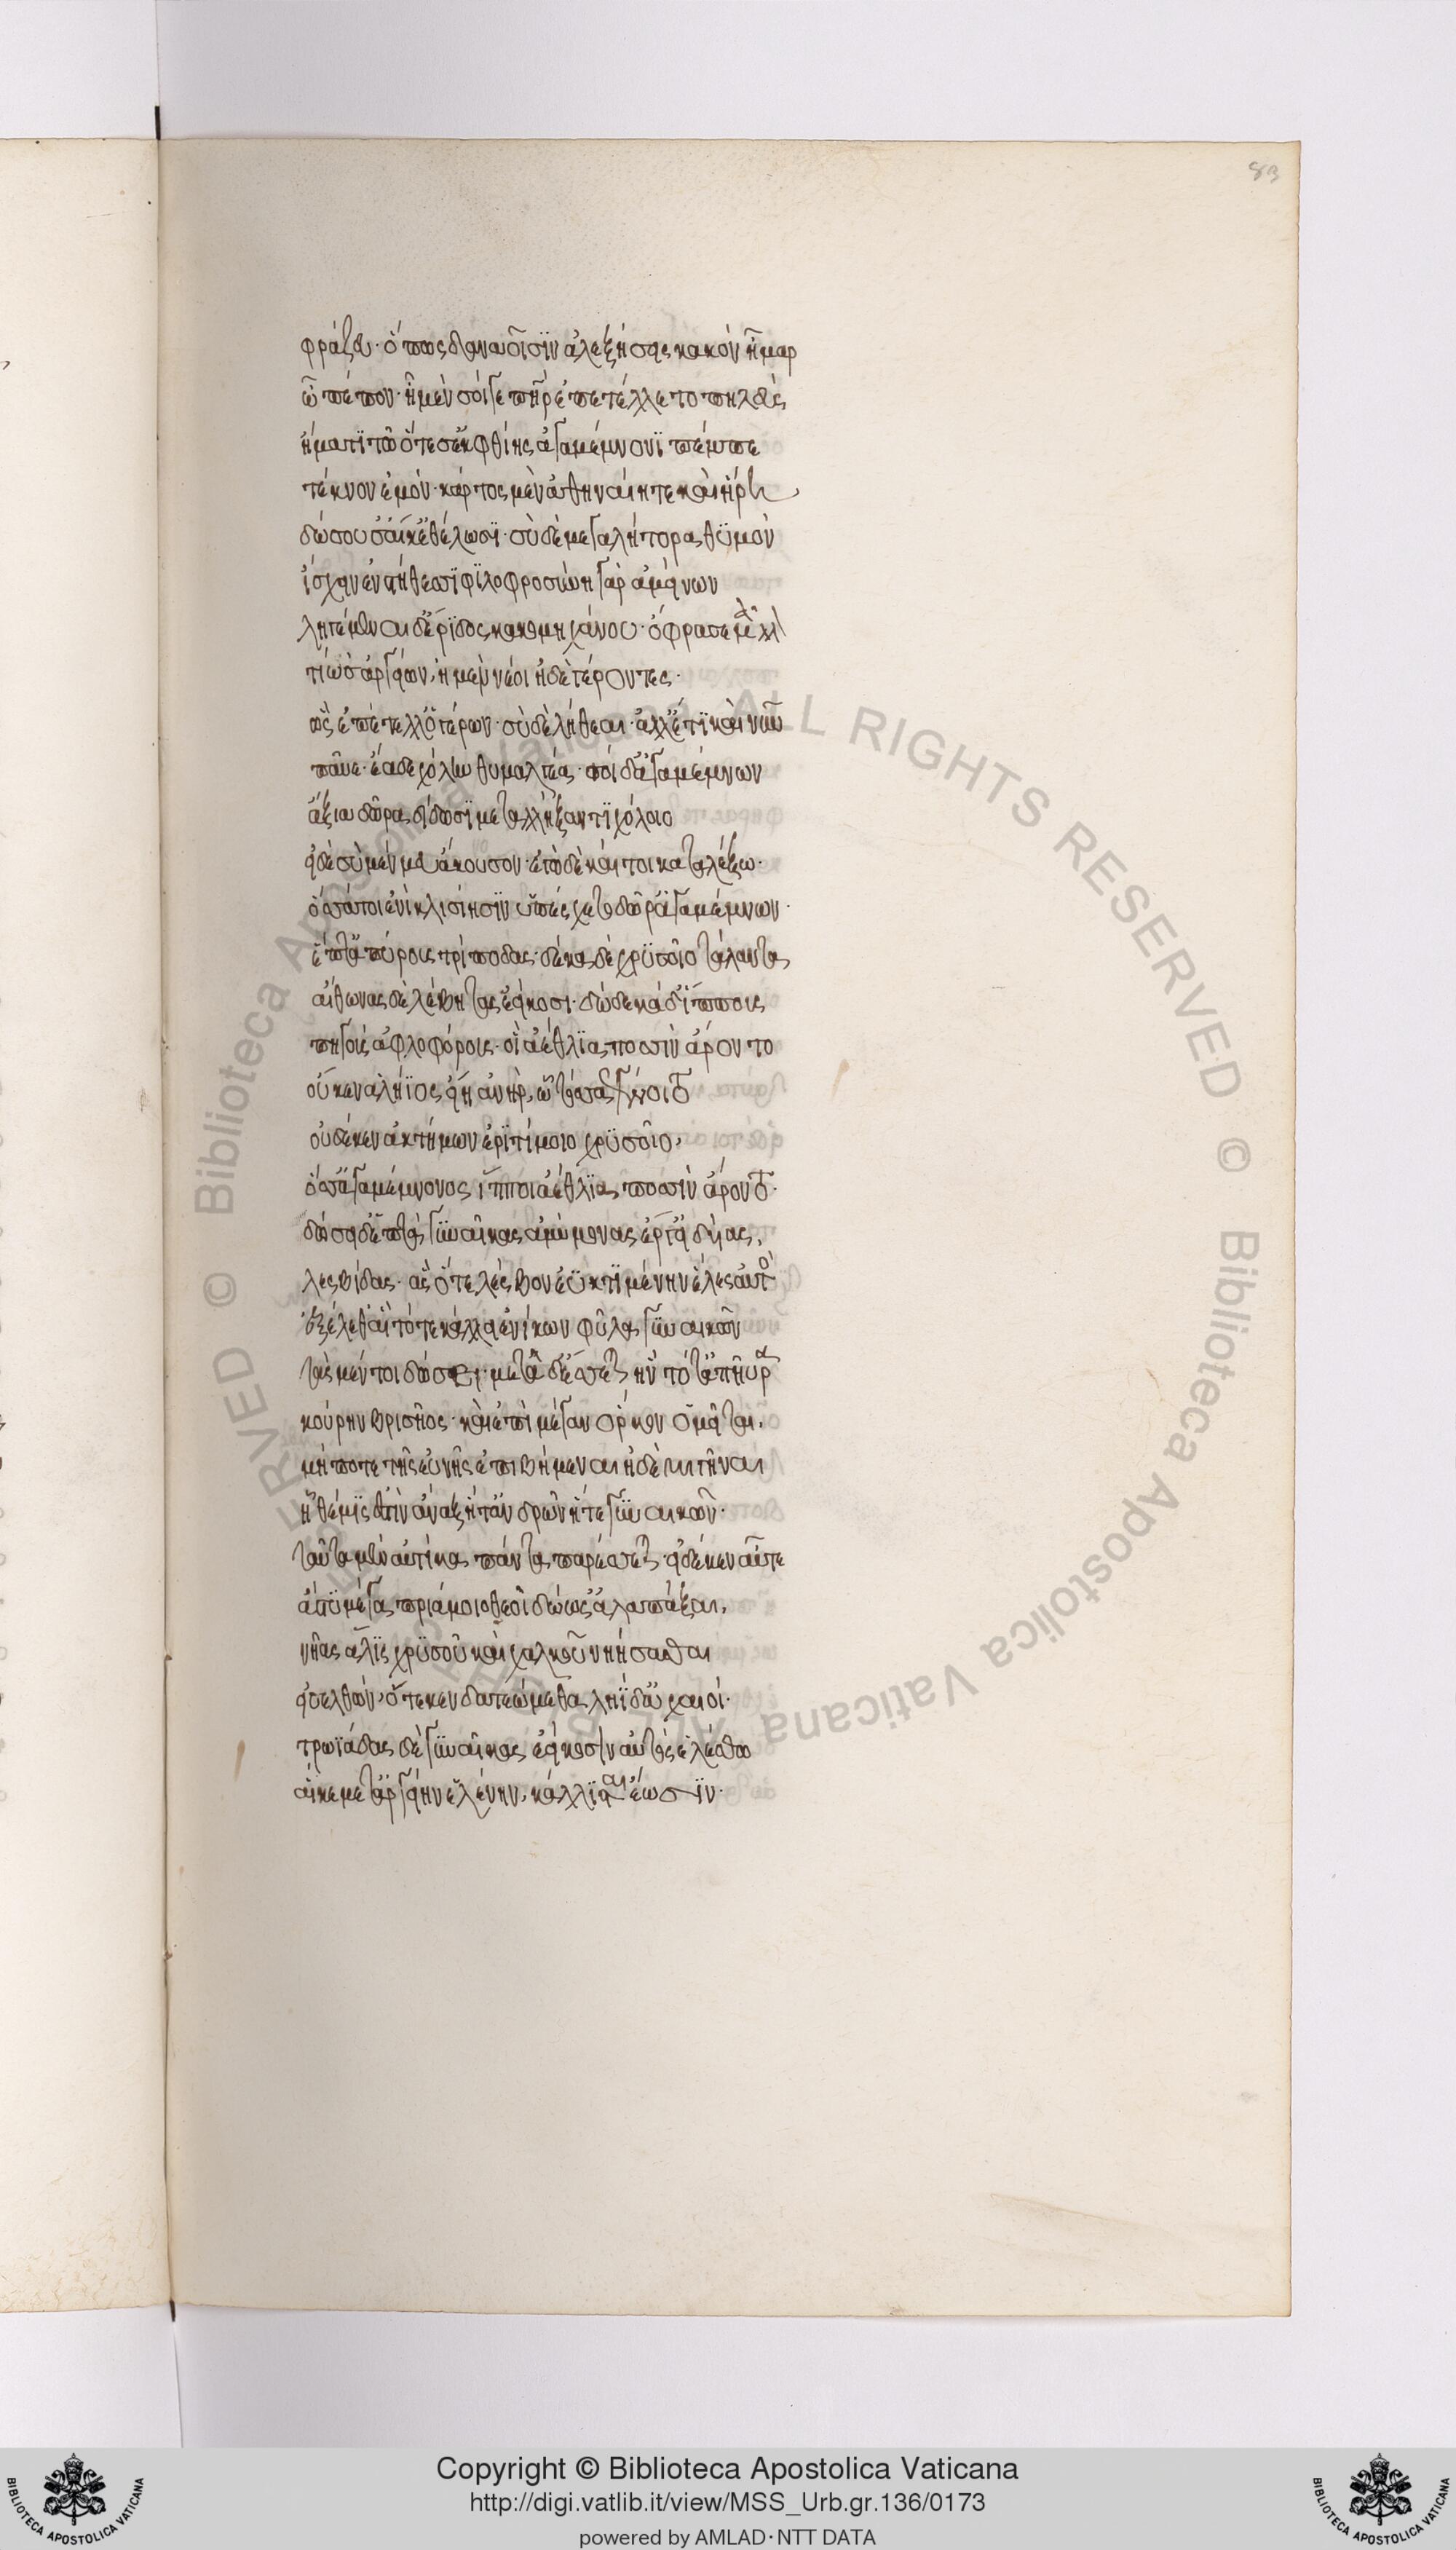 83
φράζευ· ὅπως δαναοῖσϊν ἀλεξήσεις κακὸν ἦμαρ
ὦ πέπον· ἦ μὲν σοίγε πατὴρ ἐπετέλλετο πηλεὺς
ἤματϊ τῶ ὅτε σ' ἐκ φθίης ἀγαμέμνονϊ πέμπε
τέκνον ἐμὸν· κάρτος μὲν ἀθηναίη τε καὶ ἥρη
δώσουσ' αἴκ' ἐθέλωσϊ· σὺ δὲ μεγαλήτορα θϋμὸν
ἴσχειν ἐν στήθεσσϊ φϊλοφροσύνη γὰρ ἀμείνων
ληγέμεναι δ' ἔρϊδος κακομηχάνου· ὄφρα σε μᾶλλον
τίωσ' ἀργείων, ἠμὲν νέοι ἠδὲ γέροντες·
ὣς ἐπέτελλ' ὁ γέρων· σὺ δὲ λήθεαι· ἀλλ' ἔτϊ καὶ νῦν
παῦε· ἔα δὲ χόλον θυμαλγέα· σοὶ δ' ἀγαμέμνων
ἄξια δῶρα δίδωσϊ μεταλλήξαντϊ χόλοιο
εἰ δὲ σὺ μέν μευ ἄκουσον· ἐγὼ δὲ κέ τοι καταλέξω·
ὅσσά τοι ἐνὶ κλισίησϊν ὑπέσχετο δῶρ' ἀγαμέμνων·
ἕπτ' ἀπύρους τρίποδας· δέκα δὲ χρϋσοῖο τάλαντα
αἴθωνας δὲ λέβητας ἐείκοσι· δώδεκα δ' ἵππους
πηγοὺς ἀθλοφόρους· οἳ ἀέθλϊα ποσσὶν ἄροντο
οὔ κεν ἀλήϊος εἴη ἀνὴρ, ὧ τόσσα γένοιτο
οὐδέ κεν ἀκτήμων ἐρϊτίμοιο χρϋσοῖο,
ὅσσ' ἀγαμέμνονος ἵπποι ἀέθλϊα ποσσὶν ἄροντο·
δώσει δ' ἑπτὰ γϋναῖκας ἀμύμονας ἔργ' εἰδυίας,
λεσβίδας· ἃς ὅτε λέσβον ἐϋκτϊμένην ἕλες αὐτὸς
ἐξέλεθ' αἳ τότε κάλλει ἐνίκων φῦλα γϋναικῶν
τὰς μέν τοι δώσει· μετὰ δ' ἔσσεται ἣν τότ' ἀπηύρα
κούρην βρισῆος· καὶ ἐπὶ μέγαν ὅρκον ὀμεῖται,
μήποτε τῆς εὐνῆς ἐπιβήμεναι ἠδὲ μιγῆναι
ἣ θέμϊς ἐστὶν ἄναξ ἤτ' ἀνδρῶν ἤτε γϋναικῶν·
ταῦτα μὲν αὐτίκα πάντα παρέσσεται· εἰ δέ κεν αὖτε
ἄστϋ μέγα πριάμοιο θεοὶ δώωσ' ἀλαπάξαι,
νῆας ἅλϊς χρϋσοῦ καὶ χαλκοῦ νηήσασθαι
εἰσελθὼν, ὅτε κεν δατεώμεθα ληΐδ' ἀχαιοί·
τρωϊάδας δὲ γϋναῖκας ἐείκοσιν αὐτὸς ἑλέσθαι
αἵ κε μετ' ἀργείην ἑλένην, κάλλϊσται ἔωσϊν·
Copyright © Biblioteca Apostolica Vaticana
http://digi.vatlib.it/view/MSS_Urb.gr.136/0173
powered by AMLAD·NTT DATA